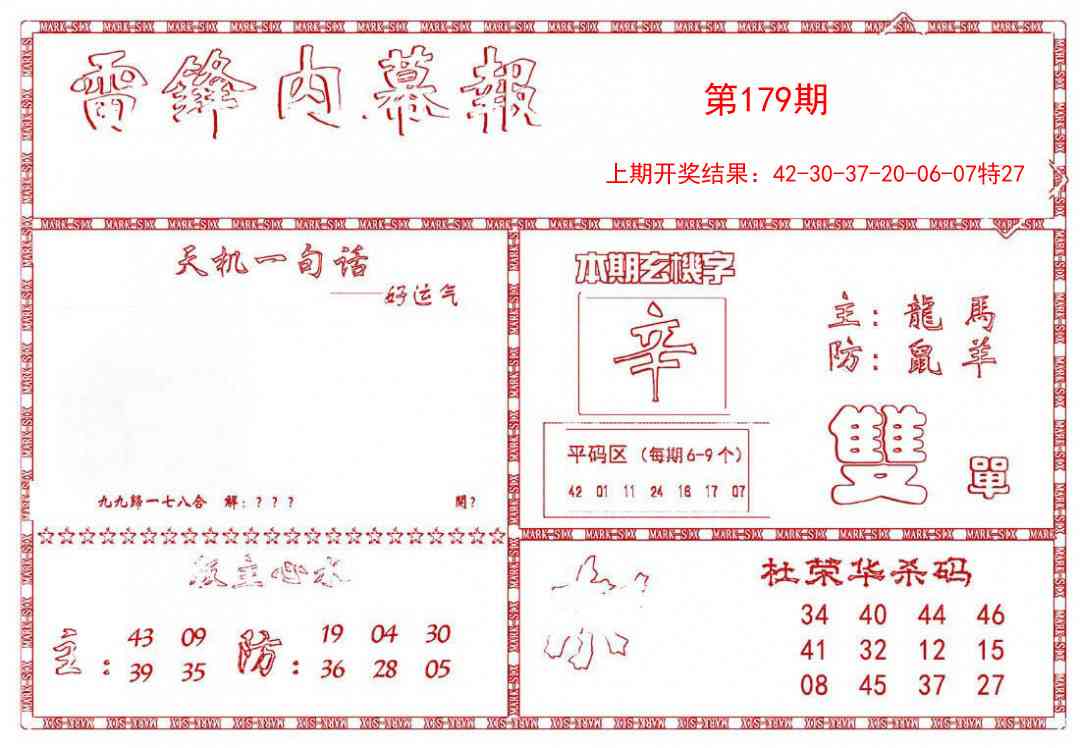 雷鋒内幕報
第179期
上期开奖结果：42-30-37-20-06-07特27
天机一句话
——好运气
九九歸一七八合 解：？？？ 開？
本期玄機字
辛
主：龍 馬
防：鼠 羊
平码区（每期6-9个）
42 01 11 24 16 17 07
雙 單
主：
43 09
39 35
防：
19 04 30
36 28 05
杜荣华杀码
34 40 44 46
41 32 12 15
08 45 37 27